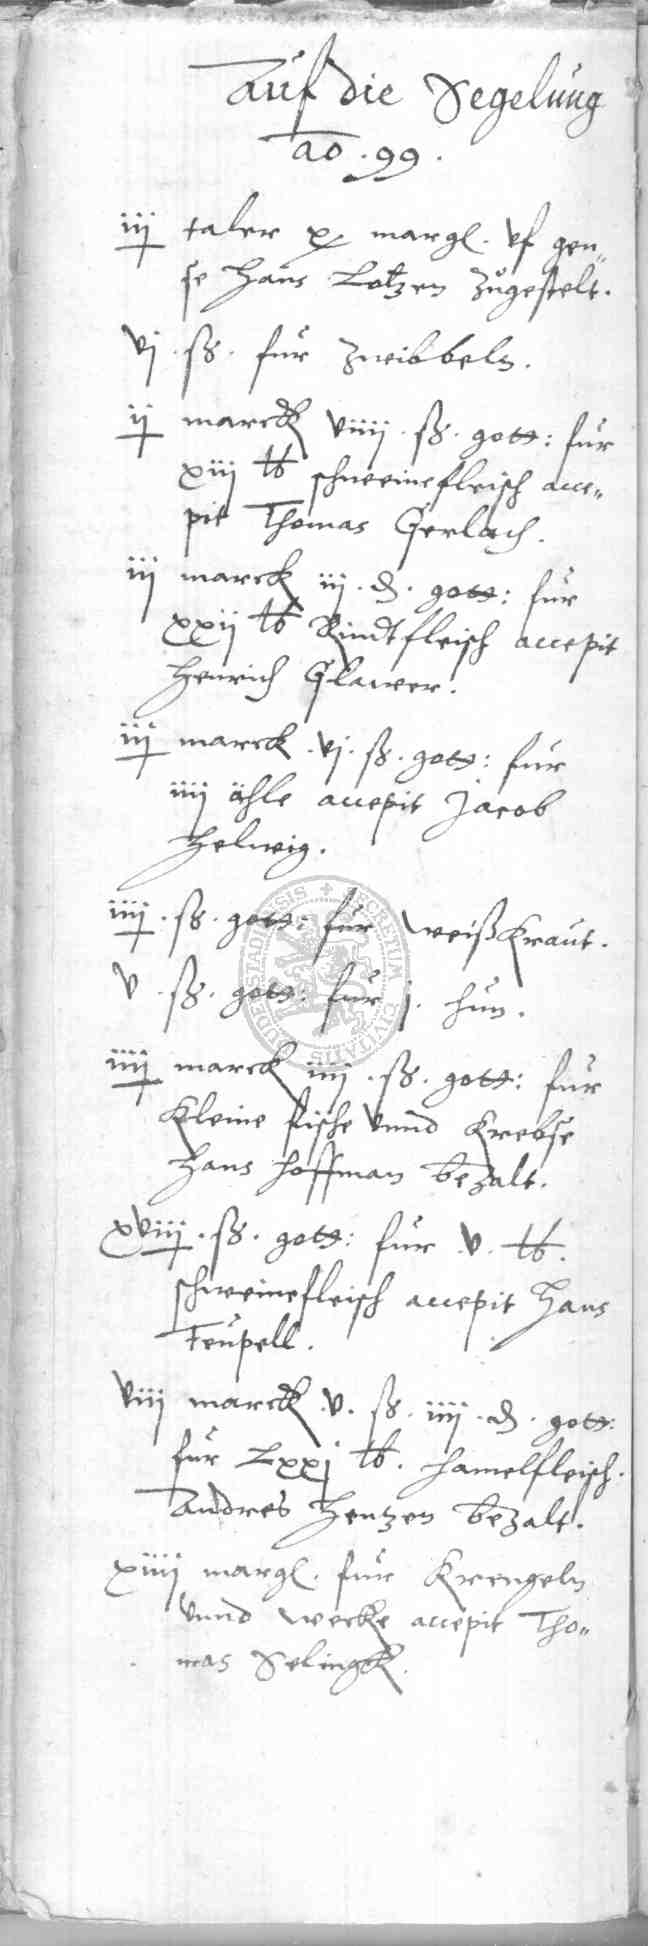 Auf die Segelung
ao . 99 .
iij taler x margl. vf gen„
se Hans Lotzen zugestelt.
vj . ß . fur zweibbeln .
ij marck viiij . ß . gott: fur
xiij lb schweinefleisch acce„
pit Thomas Gerlach .
iij marck iij . d . gott: fur
xxij lb Rindtfleisch accepit
Henrich Glawer .
iij marck . vj . ß . gott: fur
iiij ähle accepit Jacob
Helwig .
iiij . ß . gott: fur weißkraut .
v . ß . gott: fur j . hun .
iiij marck iiij . ß . gott: fur
kleine fische vnnd krebse
Hans Hoffman bezalt .
xviij . ß . gott: fur . v . lb .
schweinefleisch accepit Hans
Teupell .
viij marck . v . ß . iiij . d . gott:
fur Lxxj lb . hamelfleisch .
Andres Hentzen bezalt .
xiiij margl . fur krengeln
vnnd wecke accepit Tho„
mas Selingk .
SECRETUM CIVITATIS